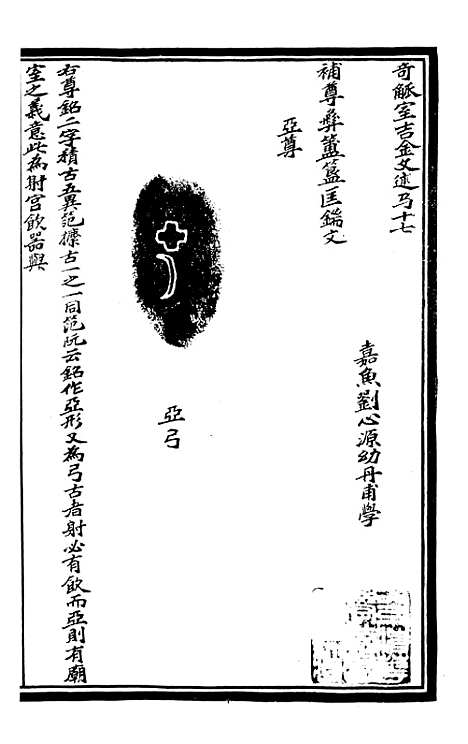 奇觚室吉金文述弓十七
嘉魚劉心源幼丹甫學
補尊彝簠簋匡鍴文
亞尊
亞弓
右尊銘二字積古五異范攈古一之一同范阮云銘作亞形又為弓古者射必有飲而亞則有廟
室之義意此為射宮飲器與